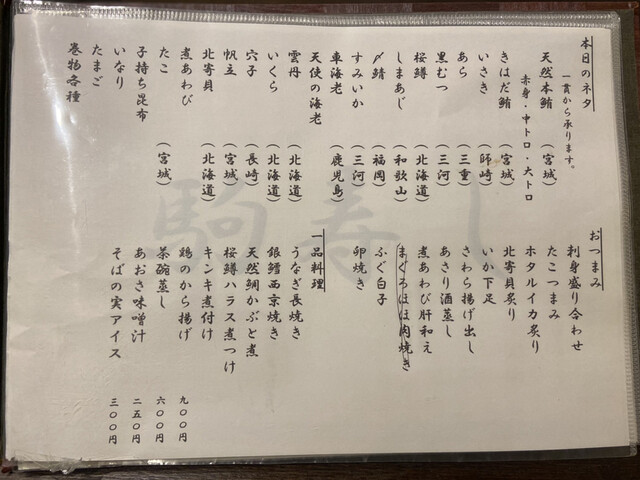 本日のネタ
一貫から承ります。
天然本鮪（宮城）
赤身・中トロ・大トロ
きはだ鮪（宮城）
いさき（師崎）
あら（三重）
黒むつ（三河）
桜鱒（北海道）
しまあじ（和歌山）
〆鯖（福岡）
すみいか（三河）
車海老（鹿児島）
天使の海老
雲丹（北海道）
いくら（北海道）
穴子（長崎）
帆立（宮城）
北寄貝（北海道）
煮あわび
たこ（宮城）
子持ち昆布
いなり
たまご
巻物各種
おつまみ
刺身盛り合わせ
たこつまみ
ホタルイカ炙り
北寄貝炙り
いか下足
さわら揚げ出し
あさり酒蒸し
煮あわび肝和え
まぐろほほ肉焼き
ふぐ白子
卵焼き
一品料理
うなぎ長焼き
銀鱈西京焼き
天然鯛かぶと煮
桜鱒ハラス煮つけ
キンキ煮付け
鶏のから揚げ 九〇〇円
茶碗蒸し 六〇〇円
あおさ味噌汁 二五〇円
そばの実アイス 三〇〇円
駒寿し